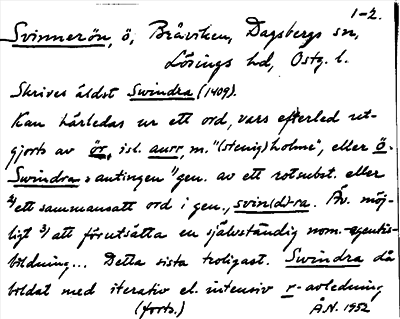 1-2.
Svinnerön, ö, Bråviken, Dagsbergs sn,
Lösings hd, Östg. l.
Skrives äldst Swindra (1409).
Kan härledas ur ett ord, vars efterled ut-
gjorts av ör, isl. aurr, m. "(stenig) holme", eller ö.
Swindra = antingen 1) gen. av ett rotsubst. eller
2) ett sammansatt ord i gen., svin(d)-ra. Äv. möj-
ligt 3) att förutsätta en självständig nom. agentis-
bildning... Detta sista troligast. Swindra då
bildat med iterativ el. intensiv r-avledning
(forts.) Å.N. 1952